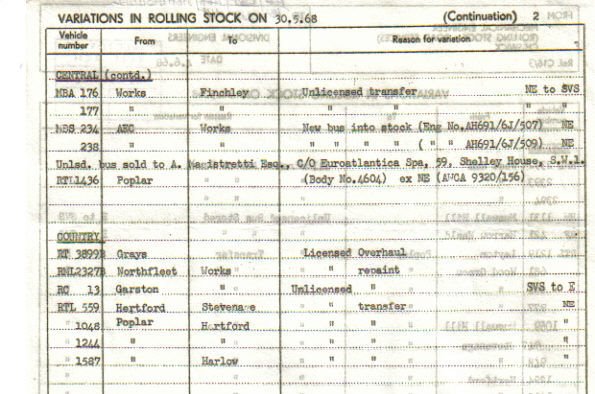 VARIATIONS IN ROLLING STOCK ON 30.5.68 (Continuation) 2
Vehicle number From To Reason for variation
CENTRAL (contd.)
MBA 176 Works Finchley Unlicensed transfer NE to SVS
177 " " " " " "
MBS 234 AEC Works New bus into stock (Eng No.AH691/6J/507) NE
238 " " " " " " ( " " AH691/6J/509) NE
Unlsd. bus sold to A. Magistretti Esq., C/O Euroatlantica Spa, 59, Shelley House, S.W.1.
RTL1436 Poplar (Body No.4604) ex NE (AWCA 9320/156)
COUNTRY.
RT 3899 Grays Licensed Overhaul
RML2327 Northfleet Works " repaint
RC 13 Garston " Unlicensed " SVS to E
RTL 559 Hertford Stevenage " transfer NE
1048 Poplar Hertford " " "
1244 " " " " "
1587 " Harlow " " "